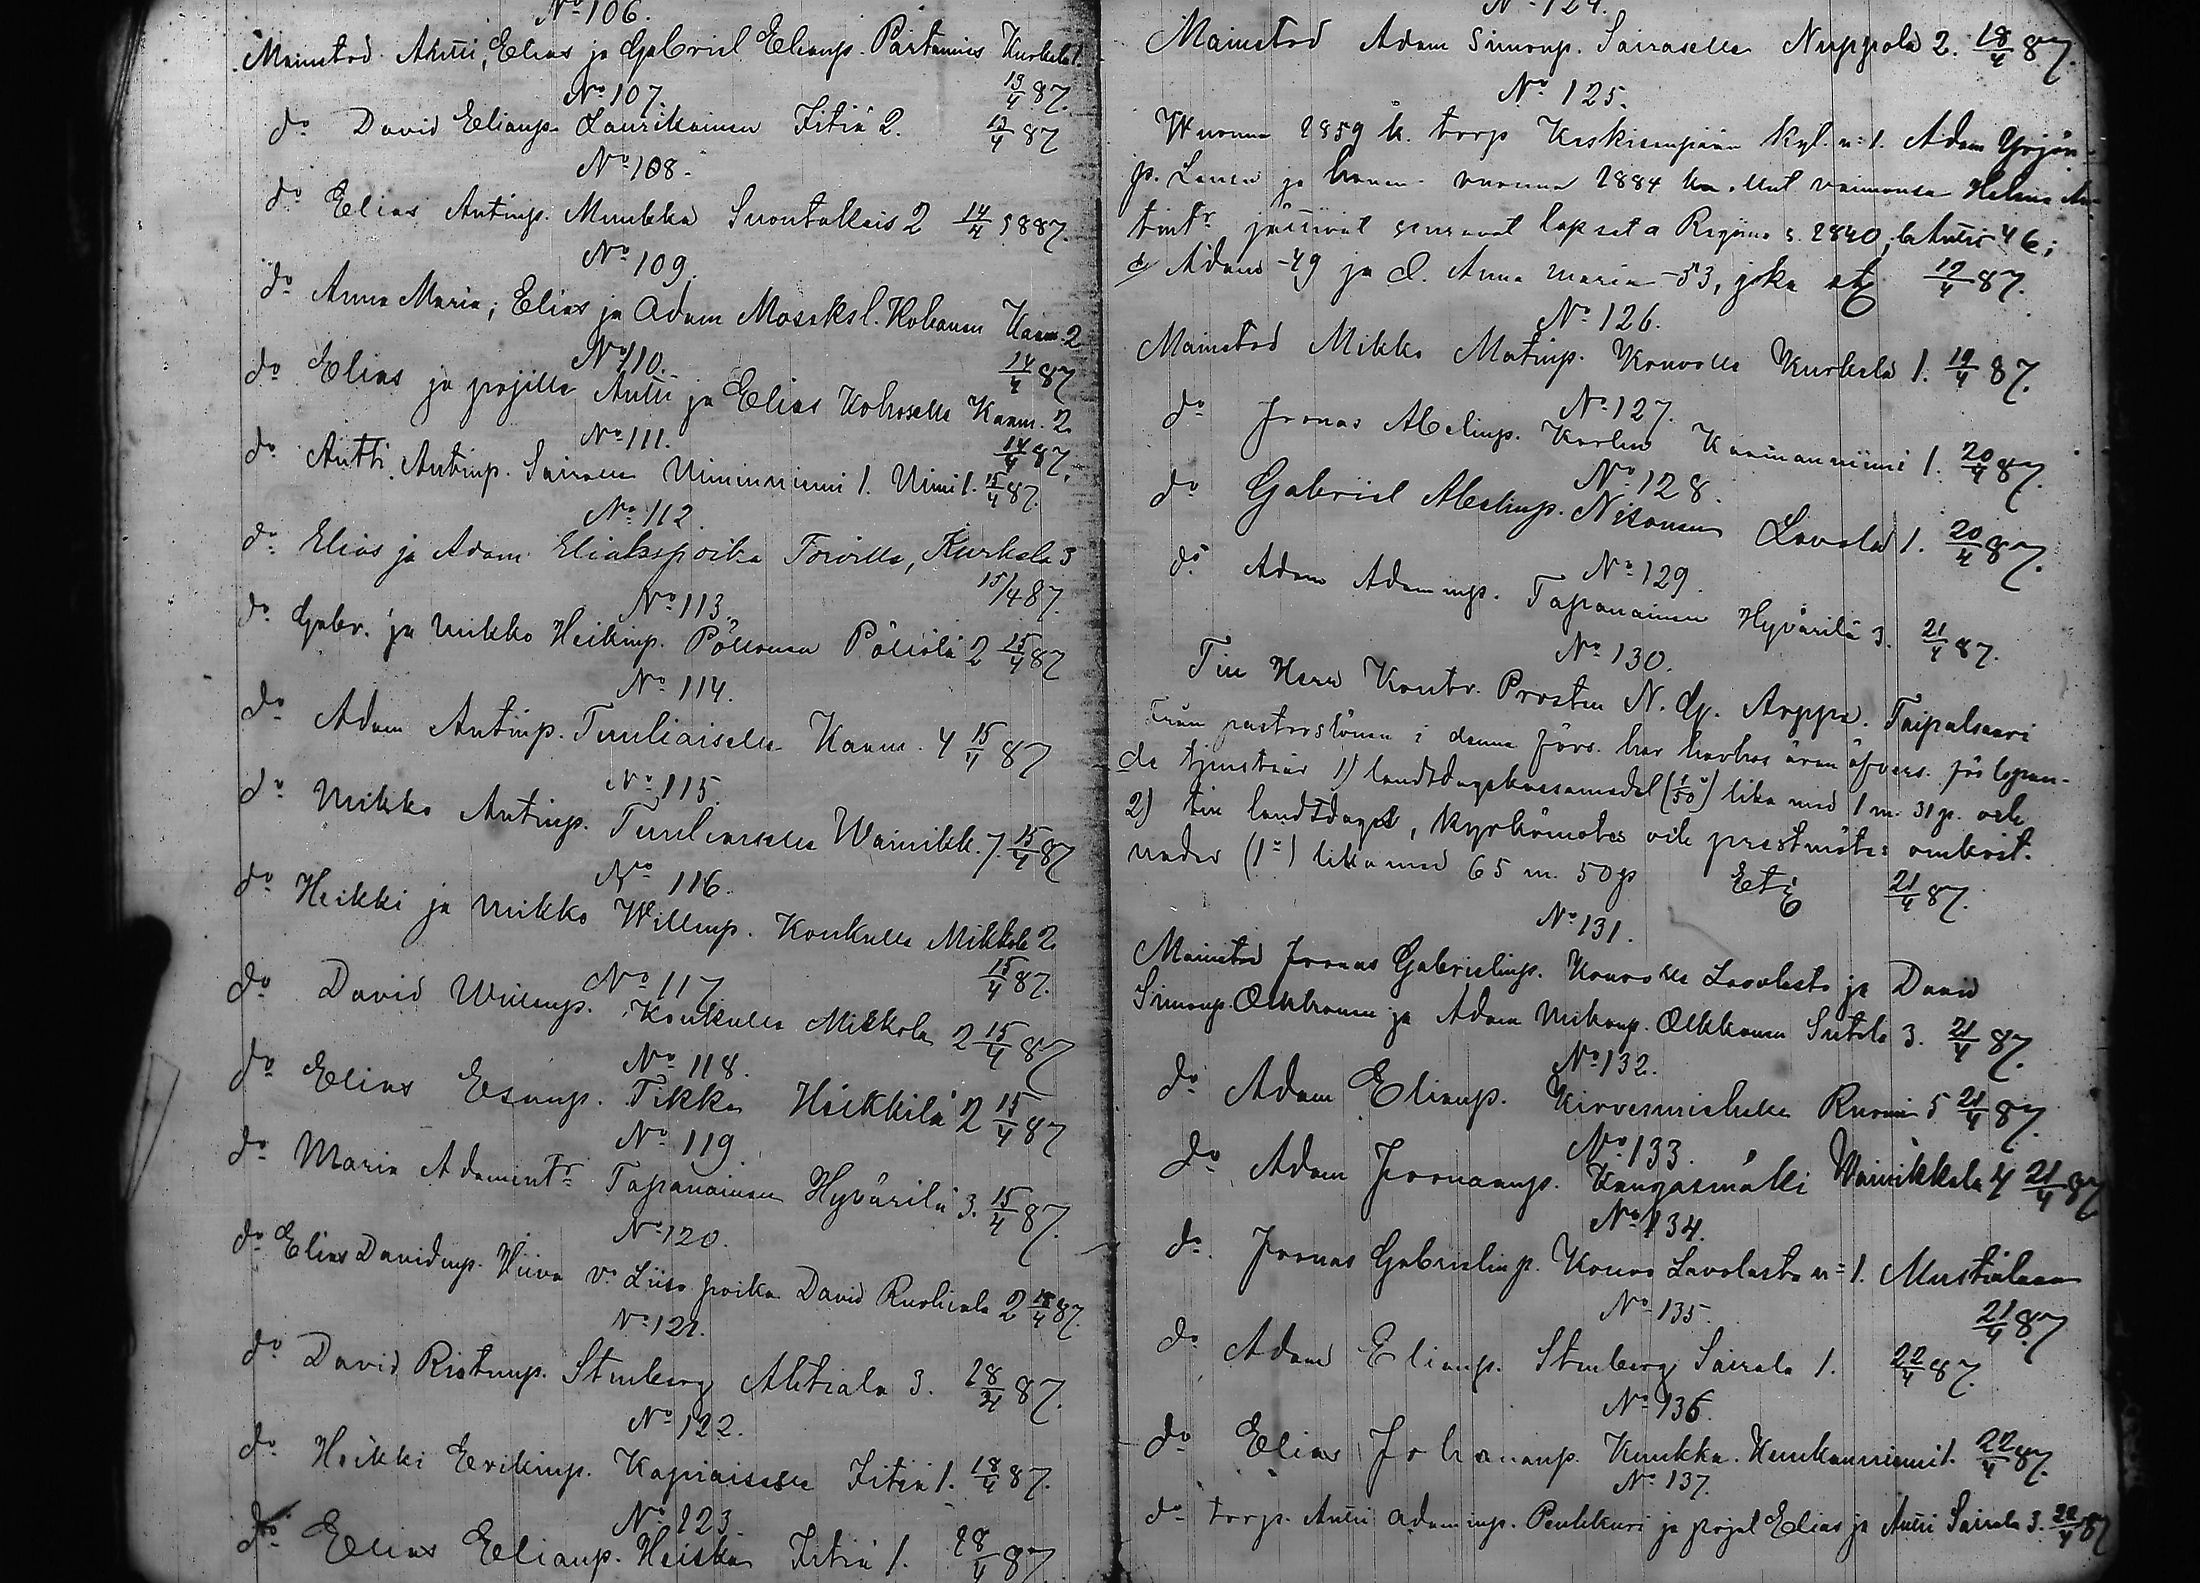 No 106.
Mainetod. Antti, Elias ja Gabriel Eliaup. Partanius Kurkela 1.
13/4 87.
No 107.
do David Eliaup. Laurikainen Iitiä 2. 13/4 87
No 108.
do Elias Antinp. Munkka Suontakais 2 14/4 1887.
No 109.
do Anna Maria; Elias ja Adam Moseksl. Kohonen Kaam. 2
14/4 87
No 110.
do Elias ja pojille Antti ja Elias Kohoselle Kaam. 2
14/4 87.
No 111.
do Antti Antinp. Sairanen Uiminniemi 1. Uimi 1. 15/4 87.
No 112.
do Elias ja Adam Eliakspoika Toivilla, Kurkela 3
15/4 87.
No 113.
do Gabr. ja Mikko Heikinp. Pöllönen Pöllölä 2 15/4 87
No 114.
do Adam Antinp. Tuuliaiselle Kaam. 4 15/4 87
No 115.
do Mikko Antinp. Tuuliaiselle Wainikk. 7. 15/4 87
No 116.
do Heikki ja Mikko Willemp. Konkulle Mikkola 2
15/4 87.
No 117
do David Willemp. Konkulle Mikkola 2 15/4 87
No 118.
do Elias Esaunp. Tikka Heikkilä 2 15/4 87
No 119.
do Maria Adamintr Tapanainen Hyvärilä 3. 15/4 87.
No 120.
do Elias Davidinp. Hiiva vo Liisa poika David Ruohiala 2 18/4 87.
No 121.
do David Ristonp. Stenberg Ahtiala 3. 18/4 87.
No 122.
do Heikki Erikinp. Kapiaiselle Iitiä 1. 18/4 87.
No 123.
do Elias Eliaup. Heiska Iitiä 1. 18/4 87.
No 124.
Mainetod Adam Simonp. Sairaselle Nuppola 2. 18/4 87.
No 125.
Wuonna 1859 k. torp Keskisenpään kyl. n: 1. Adam Yrjön-
p. Lauen ja hänen vuonna 1884 kuollut vaimonsa Helena An-
tintr jättivät seuraavat lapset a Regina s. 1840, b Antti 46;
c/ Adam -49 ja d. Anna Maria -53, joka etc 19/4 87.
No 126.
Mainetod Mikko Matinp. Konvolle Kurkela 1. 19/4 87.
No 127.
do Joonas Abelinp. Karhu Karimanniemi 1. 20/4 87.
No 128.
do Gabriel Abelinp. Nikonen Lavola 1. 20/4 87.
No 129.
do Adam Adaminp. Tapanainen Hyvärilä 3. 21/4 87.
No 130.
Till Herr Kontr. Prosten N. G. Arppe. Taipalsaari
Från pastorslönen i denna förs. har härhos äran öfvers. följan-
de tjenstiär 1) landtdagskassamedel (1/50) lika med 1 m. 31 p. och
2) till landtdags, kyrkömötes och prestmötes omkost-
nader (1o) lika med 65 m. 50 p Etc 21/4 87.
No 131.
Mainetod Joonas Gabrielinp. Konvolle Lavolasta ja David
Simonp. Olkkonen ja Adam Mikonp. Olkkonen Sutela 3. 21/4 87.
No 132.
do Adam Eliaup. Kirvesmieheke Ruomi 5 21/4 87.
No 133.
do Adam Joonaanp. Kangasmäki Wainikkala 4 21/4 87
No 134.
do Joonas Gabrielinp. Konvo Lavolasta n: 1. Mustialaan
21/4 87
No 135.
do Adam Eliaup. Stenberg Sairala 1. 22/4 87.
No 136.
do Elias Johananp. Kunkka. Kunkanniemi 1. 22/4 87.
No 137.
do torp. Antti Adaminp. Penkkuri ja pojat Elias ja Antti Sairala 3. 22/4 87